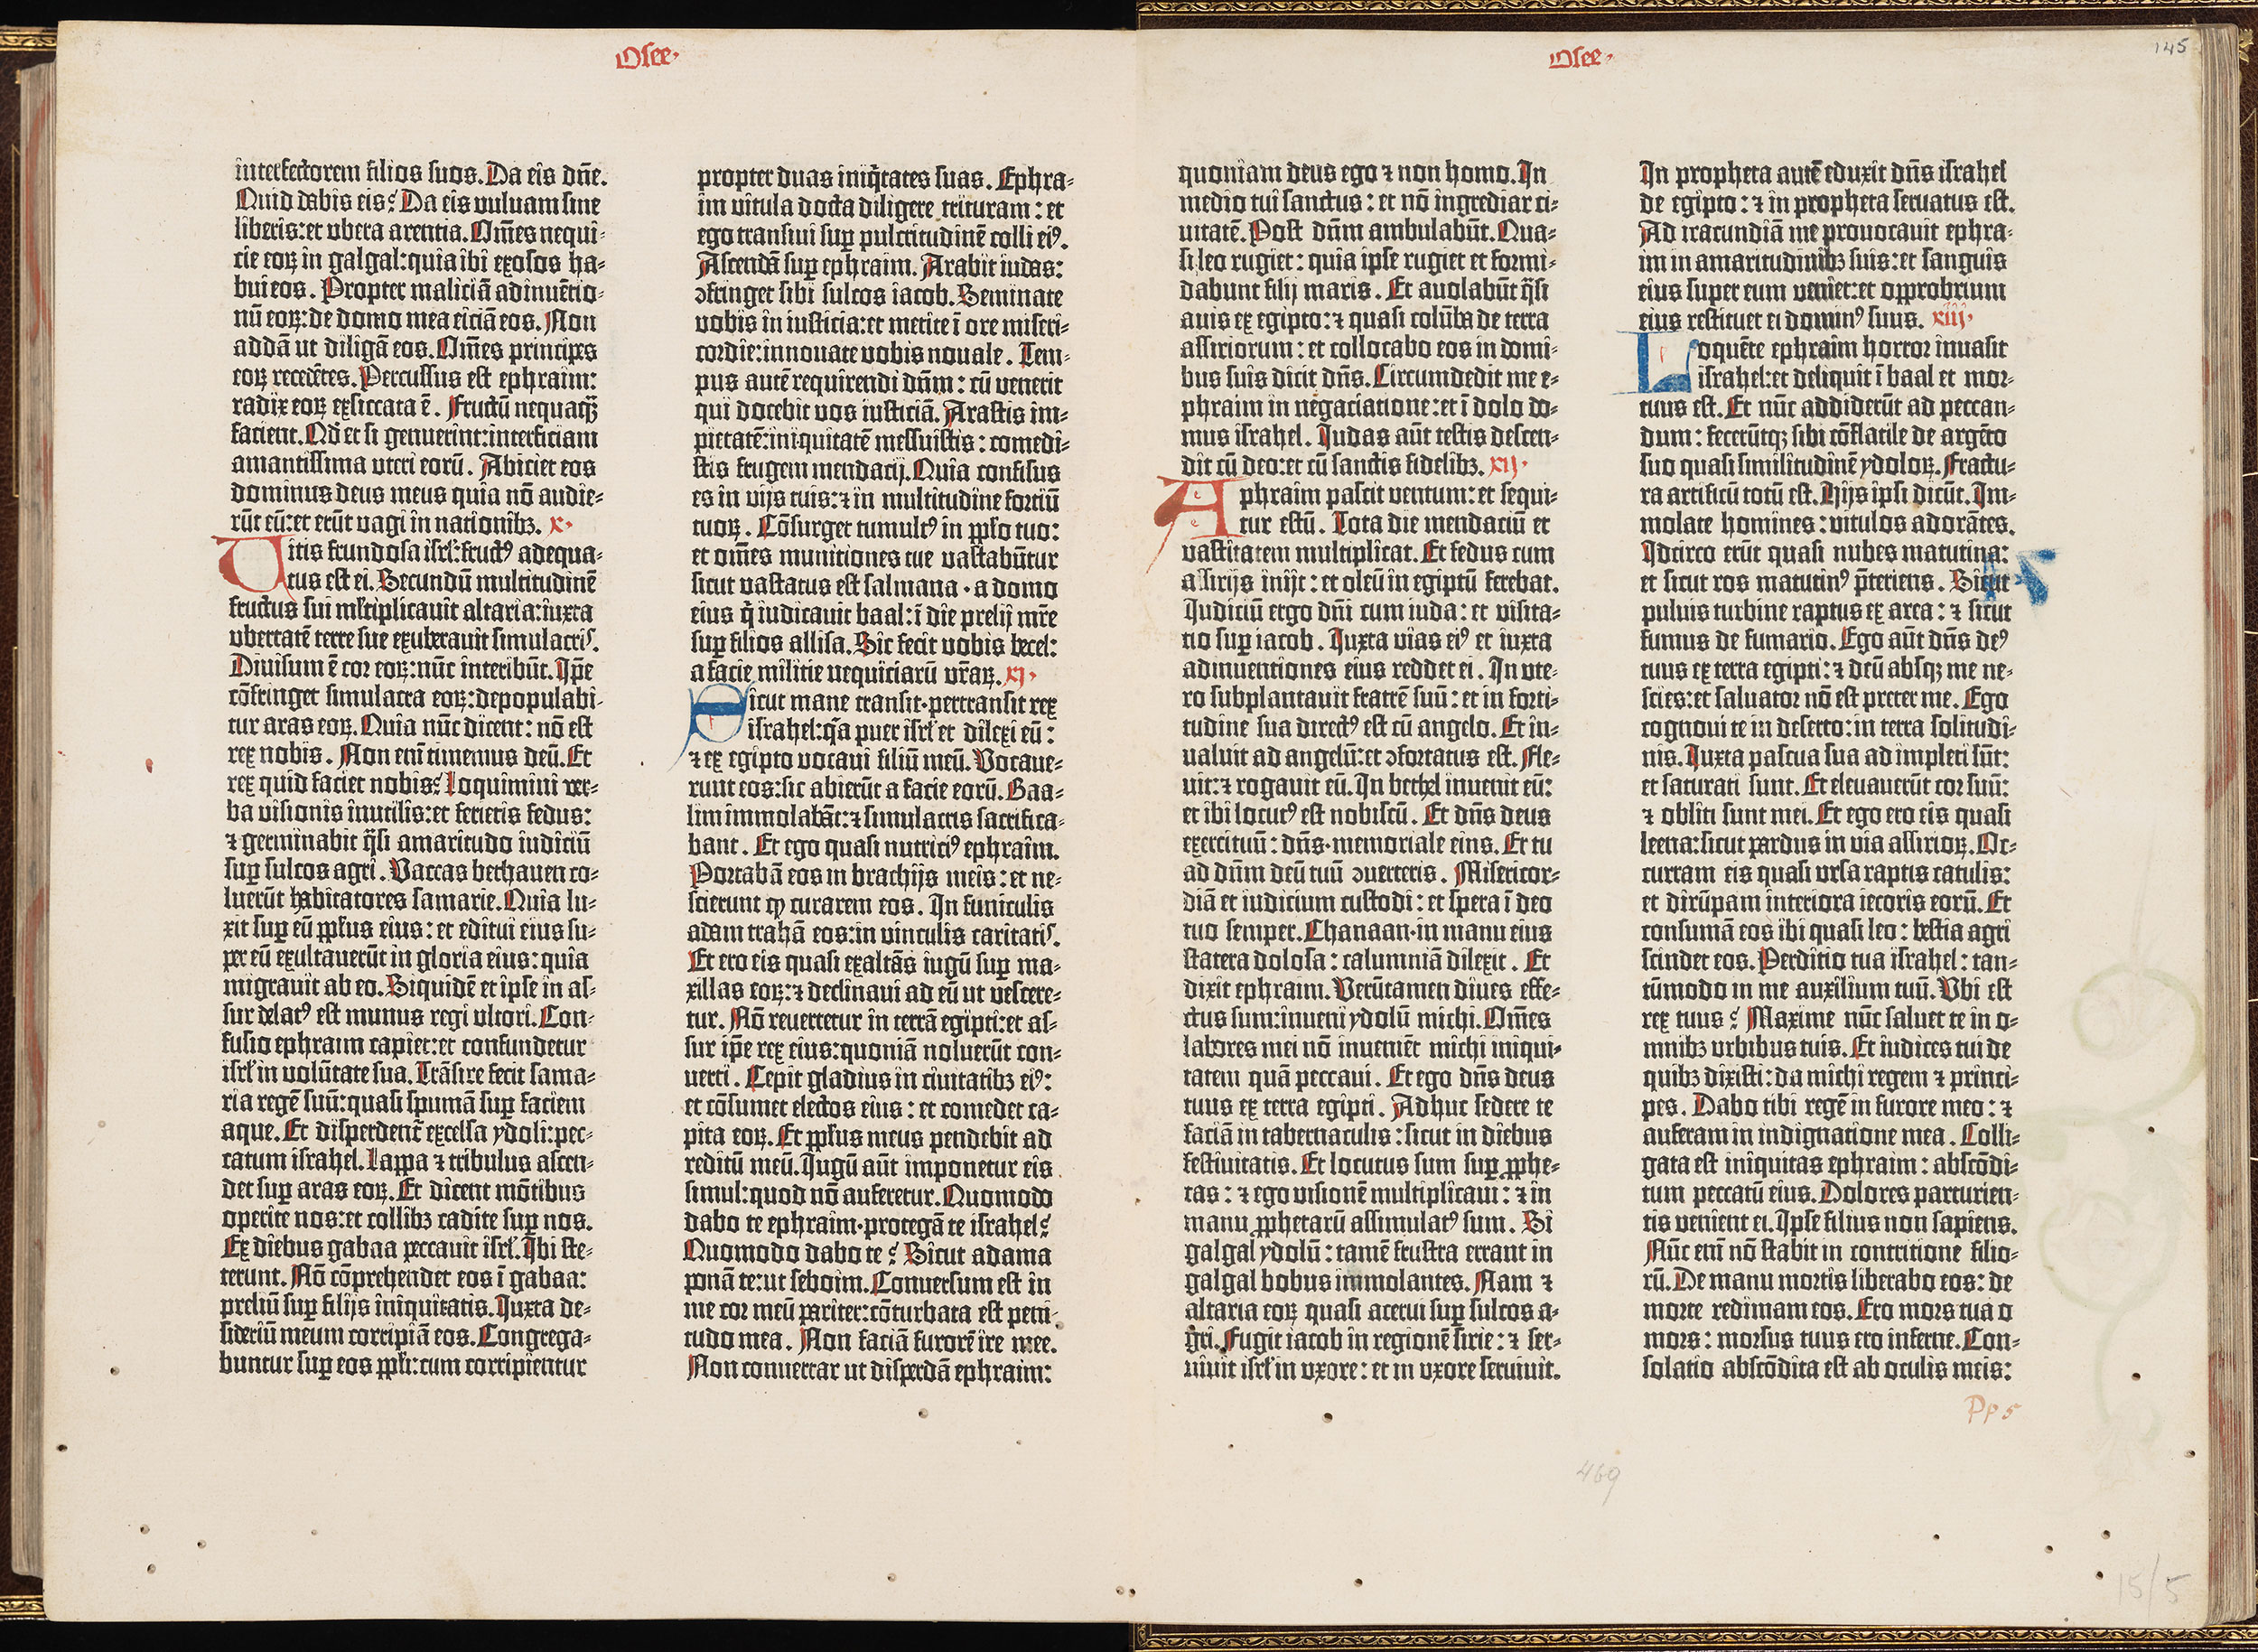 Osee·
interfectorem filios suos. Da eis dn̄e.
Quid dabis eis? Da eis vuluam sine
liberis: et vbera arentia. Om̄es nequi-
cie eoꝝ in galgal: quia ibi exosos ha-
bui eos. Propter maliciā adinuētio-
nū eoꝝ: de domo mea eiciā eos. Non
addā ut diligā eos. Om̄es principes
eoꝝ recedētes. Percussus est ephraim:
radix eoꝝ exsiccata ē. Fructū nequaqꝫ
facient. Qd̛ et si genuerint: interficiam
amantissima vteri eorū. Abiciet eos
dominus deus meus quia nō audie-
rūt eū: et erūt vagi in nationibꝫ. x·
Uitis frundosa isrl̓: fructꝰ adequa-
tus est ei. Secundū multitudinē
fructus sui ml̓tiplicauit altaria: iuxta
vbertatē terre sue exuberauit simulacris.
Diuisum ē cor eoꝝ: nūc interibūt. Ip̄e
cōfringet simulacra eoꝝ: depopulabi-
tur aras eoꝝ. Quia nūc dicent: nō est
rex nobis. Non enī timemus deū. Et
rex quid faciet nobis? Loquimini ver-
ba visionis inutilis: et ferietis fedus:
⁊ germinabit q̄si amaritudo iudiciū
suꝑ sulcos agri. Vaccas bethauen co-
luerūt habitatores samarie. Quia lu-
xit suꝑ eū ppl̓us eius: et editui eius su-
per eū exultauerūt in gloria eius: quia
migrauit ab eo. Siquidē et ipse in as-
sur delatꝰ est munus regi vltori. Con-
fusio ephraim capiet: et confundetur
isrl̓ in volūtate sua. Trāsire fecit sama-
ria regē suū: quasi spumā suꝑ faciem
aque. Et disperdent̄ excelsa ydoli: pec-
catum israhel. Lappa ⁊ tribulus ascen-
det suꝑ aras eoꝝ. Et dicent mōtibus
operite nos: et collibꝫ cadite suꝑ nos.
Ex diebus gabaa peccauit isrl̓. Ibi ste-
terunt. Nō cōprehendet eos ī gabaa:
preliū suꝑ filijs iniquitatis. Iuxta de-
sideriū meum corripiā eos. Congrega-
buntur suꝑ eos ppl̓i: cum corripientur
propter duas iniq̄tates suas. Ephra-
im vitula docta diligere trituram: et
ego transiui suꝑ pulcritudinē colli eiꝰ.
Ascendā suꝑ ephraim. Arabit iudas:
ꝯfringet sibi sulcos iacob. Seminate
vobis in iusticia: et metite ī ore miseri-
cordie: innouate vobis nouale. Tem-
pus autē requirendi dn̄m: cū venerit
qui docebit vos iusticiā. Arastis im-
pietatē: iniquitatē messuistis: comedi-
stis frugem mendacij. Quia confisus
es in vijs tuis: ⁊ in multitudine fortiū
tuoꝝ. Cōsurget tumultꝰ in ppl̓o tuo:
et om̄es munitiones tue vastabūtur
sicut vastatus est salmana· a domo
eius q̇ iudicauit baal: ī die prelij mr̄e
suꝑ filios allisa. Sic fecit vobis betel:
a facie militie nequiciarū vr̄aꝝ. xj·
Sicut mane transit· pertransit rex
israhel: q̄a puer isrl̓ et dilexi eū:
⁊ ex egipto vocaui filiū meū. Vocaue-
runt eos: sic abierūt a facie eorū. Baa-
lim immolabāt: ⁊ simulacris sacrifica-
bant. Et ego quasi nutriciꝰ ephraim.
Portabā eos in brachijs meis: et ne-
scierunt ꝙ curarem eos. In funiculis
adam trahā eos: in vinculis caritatis.
Et ero eis quasi exaltās iugū suꝑ ma-
xillas eoꝝ: ⁊ declinaui ad eū ut vescere-
tur. Nō reuertetur in terrā egipti: et as-
sur ip̄e rex eius: quoniā noluerūt con-
uerti. Cepit gladius in ciuitatibꝫ eiꝰ:
et cōsumet electos eius: et comedet ca-
pita eoꝝ. Et ppl̓us meus pendebit ad
reditū meū. Iugū aūt imponetur eis
simul: quod nō auferetur. Quomodo
dabo te ephraim· protegā te israhel?
Quomodo dabo te? Sicut adama
ponā te: ut seboim. Conuersum est in
me cor meū pariter: cōturbata est peni-
tudo mea. Non faciā furorē ire mee.
Non conuertar ut disperdā ephraim:
Osee·
145
quoniam deus ego ⁊ non homo. In
medio tui sanctus: et nō ingrediar ci-
uitatē. Post dn̄m ambulabūt. Qua-
si leo rugiet: quia ipse rugiet et formi-
dabunt filij maris. Et auolabūt q̄si
auis ex egipto: ⁊ quasi colūba de terra
assiriorum: et collocabo eos in domi-
bus suis dicit dn̄s. Circumdedit me e-
phraim in negaciatione: et ī dolo do-
mus israhel. Iudas aūt testis descen-
dit cū deo: et cū sanctis fidelibꝫ. xij·
Aphraim pascit ventum: et sequi-
tur estū. Tota die mendaciū et
vastitatem multiplicat. Et fedus cum
assirijs inijt: et oleū in egiptū ferebat.
Iudiciū ergo dn̄i cum iuda: et visita-
tio suꝑ iacob. Iuxta vias eiꝰ et iuxta
adinuentiones eius reddet ei. In vte-
ro subplantauit fratrē suū: et in forti-
tudine sua directꝰ est cū angelo. Et in-
ualuit ad angelū: et ꝯfortatus est. Fle-
uit: ⁊ rogauit eū. In bethel inuenit eū:
et ibi locutꝰ est nobiscū. Et dn̄s deus
exercituū: dn̄s· memoriale eius. Et tu
ad dn̄m deū tuū ꝯuerteris. Misericor-
diā et iudicium custodi: et spera ī deo
tuo semper. Chanaan· in manu eius
statera dolosa: calumniā dilexit. Et
dixit ephraim. Verūtamen diues effe-
ctus sum: inueni ydolū michi. Om̄es
labores mei nō inueniēt michi iniqui-
tatem quā peccaui. Et ego dn̄s deus
tuus ex terra egipti. Adhuc sedere te
faciā in tabernaculis: sicut in diebus
festiuitatis. Et locutus sum suꝑ ꝓphe-
tas: ⁊ ego visionē multiplicaui: ⁊ in
manu ꝓphetarū assimulatꝰ sum. Si
galgal ydolū: tamē frustra errant in
galgal bobus immolantes. Nam ⁊
altaria eoꝝ quasi acerui suꝑ sulcos a-
gri. Fugit iacob in regionē sirie: ⁊ ser-
uiuit isrl̓ in vxore: et in vxore seruiuit.
In propheta autē eduxit dn̄s israhel
de egipto: ⁊ in propheta seruatus est.
Ad iracundiā me prouocauit ephra-
im in amaritudinibꝫ suis: et sanguis
eius super eum veniet: et opprobrium
eius restituet ei dominꝰ suus. xiij·
Loquēte ephraim horror inuasit
israhel: et deliquit ī baal et mor-
tuus est. Et nūc addiderūt ad peccan-
dum: fecerūtqꝫ sibi cōflatile de argēto
suo quasi similitudinē ydoloꝝ. Factu-
ra artificū totū est. Hijs ipsi dicūt. Im-
molate homines: vitulos adorātes.
Idcirco erūt quasi nubes matutina:
et sicut ros matutinꝰ p̄teriens. Sicut
puluis turbine raptus ex area: ⁊ sicut
fumus de fumario. Ego aūt dn̄s deꝰ
tuus ex terra egipti: ⁊ deū absqꝫ me ne-
scies: et saluator nō est preter me. Ego
cognoui te in deserto: in terra solitudi-
nis. Iuxta pascua sua adimpleti sūt:
et saturati sunt. Et eleuauerūt cor suū:
⁊ obliti sunt mei. Et ego ero eis quasi
leena: sicut pardus in via assirioꝝ. Oc-
curram eis quasi vrsa raptis catulis:
et dirūpam interiora iecoris eorū. Et
consumā eos ibi quasi leo: bestia agri
scindet eos. Perditio tua israhel: tan-
tūmodo in me auxilium tuū. Vbi est
rex tuus? Maxime nūc saluet te in o-
mnibꝫ vrbibus tuis. Et iudices tui de
quibꝫ dixisti: da michi regem ⁊ princi-
pes. Dabo tibi regē in furore meo: ⁊
auferam in indignatione mea. Colli-
gata est iniquitas ephraim: abscōdi-
tum peccatū eius. Dolores parturien-
tis venient ei. Ipse filius non sapiens.
Nūc enī nō stabit in contritione filio-
rū. De manu mortis liberabo eos: de
morte redimam eos. Ero mors tua o
mors: morsus tuus ero inferne. Con-
solatio abscōdita est ab oculis meis:
Pp 5
469
15/5